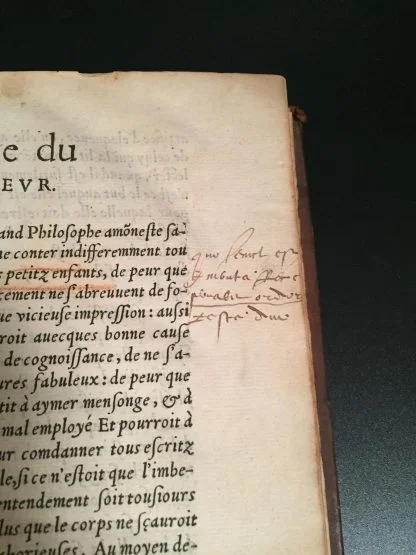 e du
EVR.
and Philoſophe amōneſte ſa-
ne conter indifferemment tou
s petitz enfants, de peur que
cement ne s'abreuuent de fo-
ue vicieuse impreſſion: auſſi
roit auecques bonne cauſe
de cognoiſſance, de ne s'a-
ures fabuleux: de peur que
tit à aymer menſonge, & à
mal employé Et pourroit à
ur comdanner tous eſcritz
le, ſi ce n'eſtoit que l'imbe-
entendement ſoit touſiours
lus que le corps ne ſçauroit
aborieuſes. Au moyen de-
quo semel est
imbuta
servabit odor
testa diu